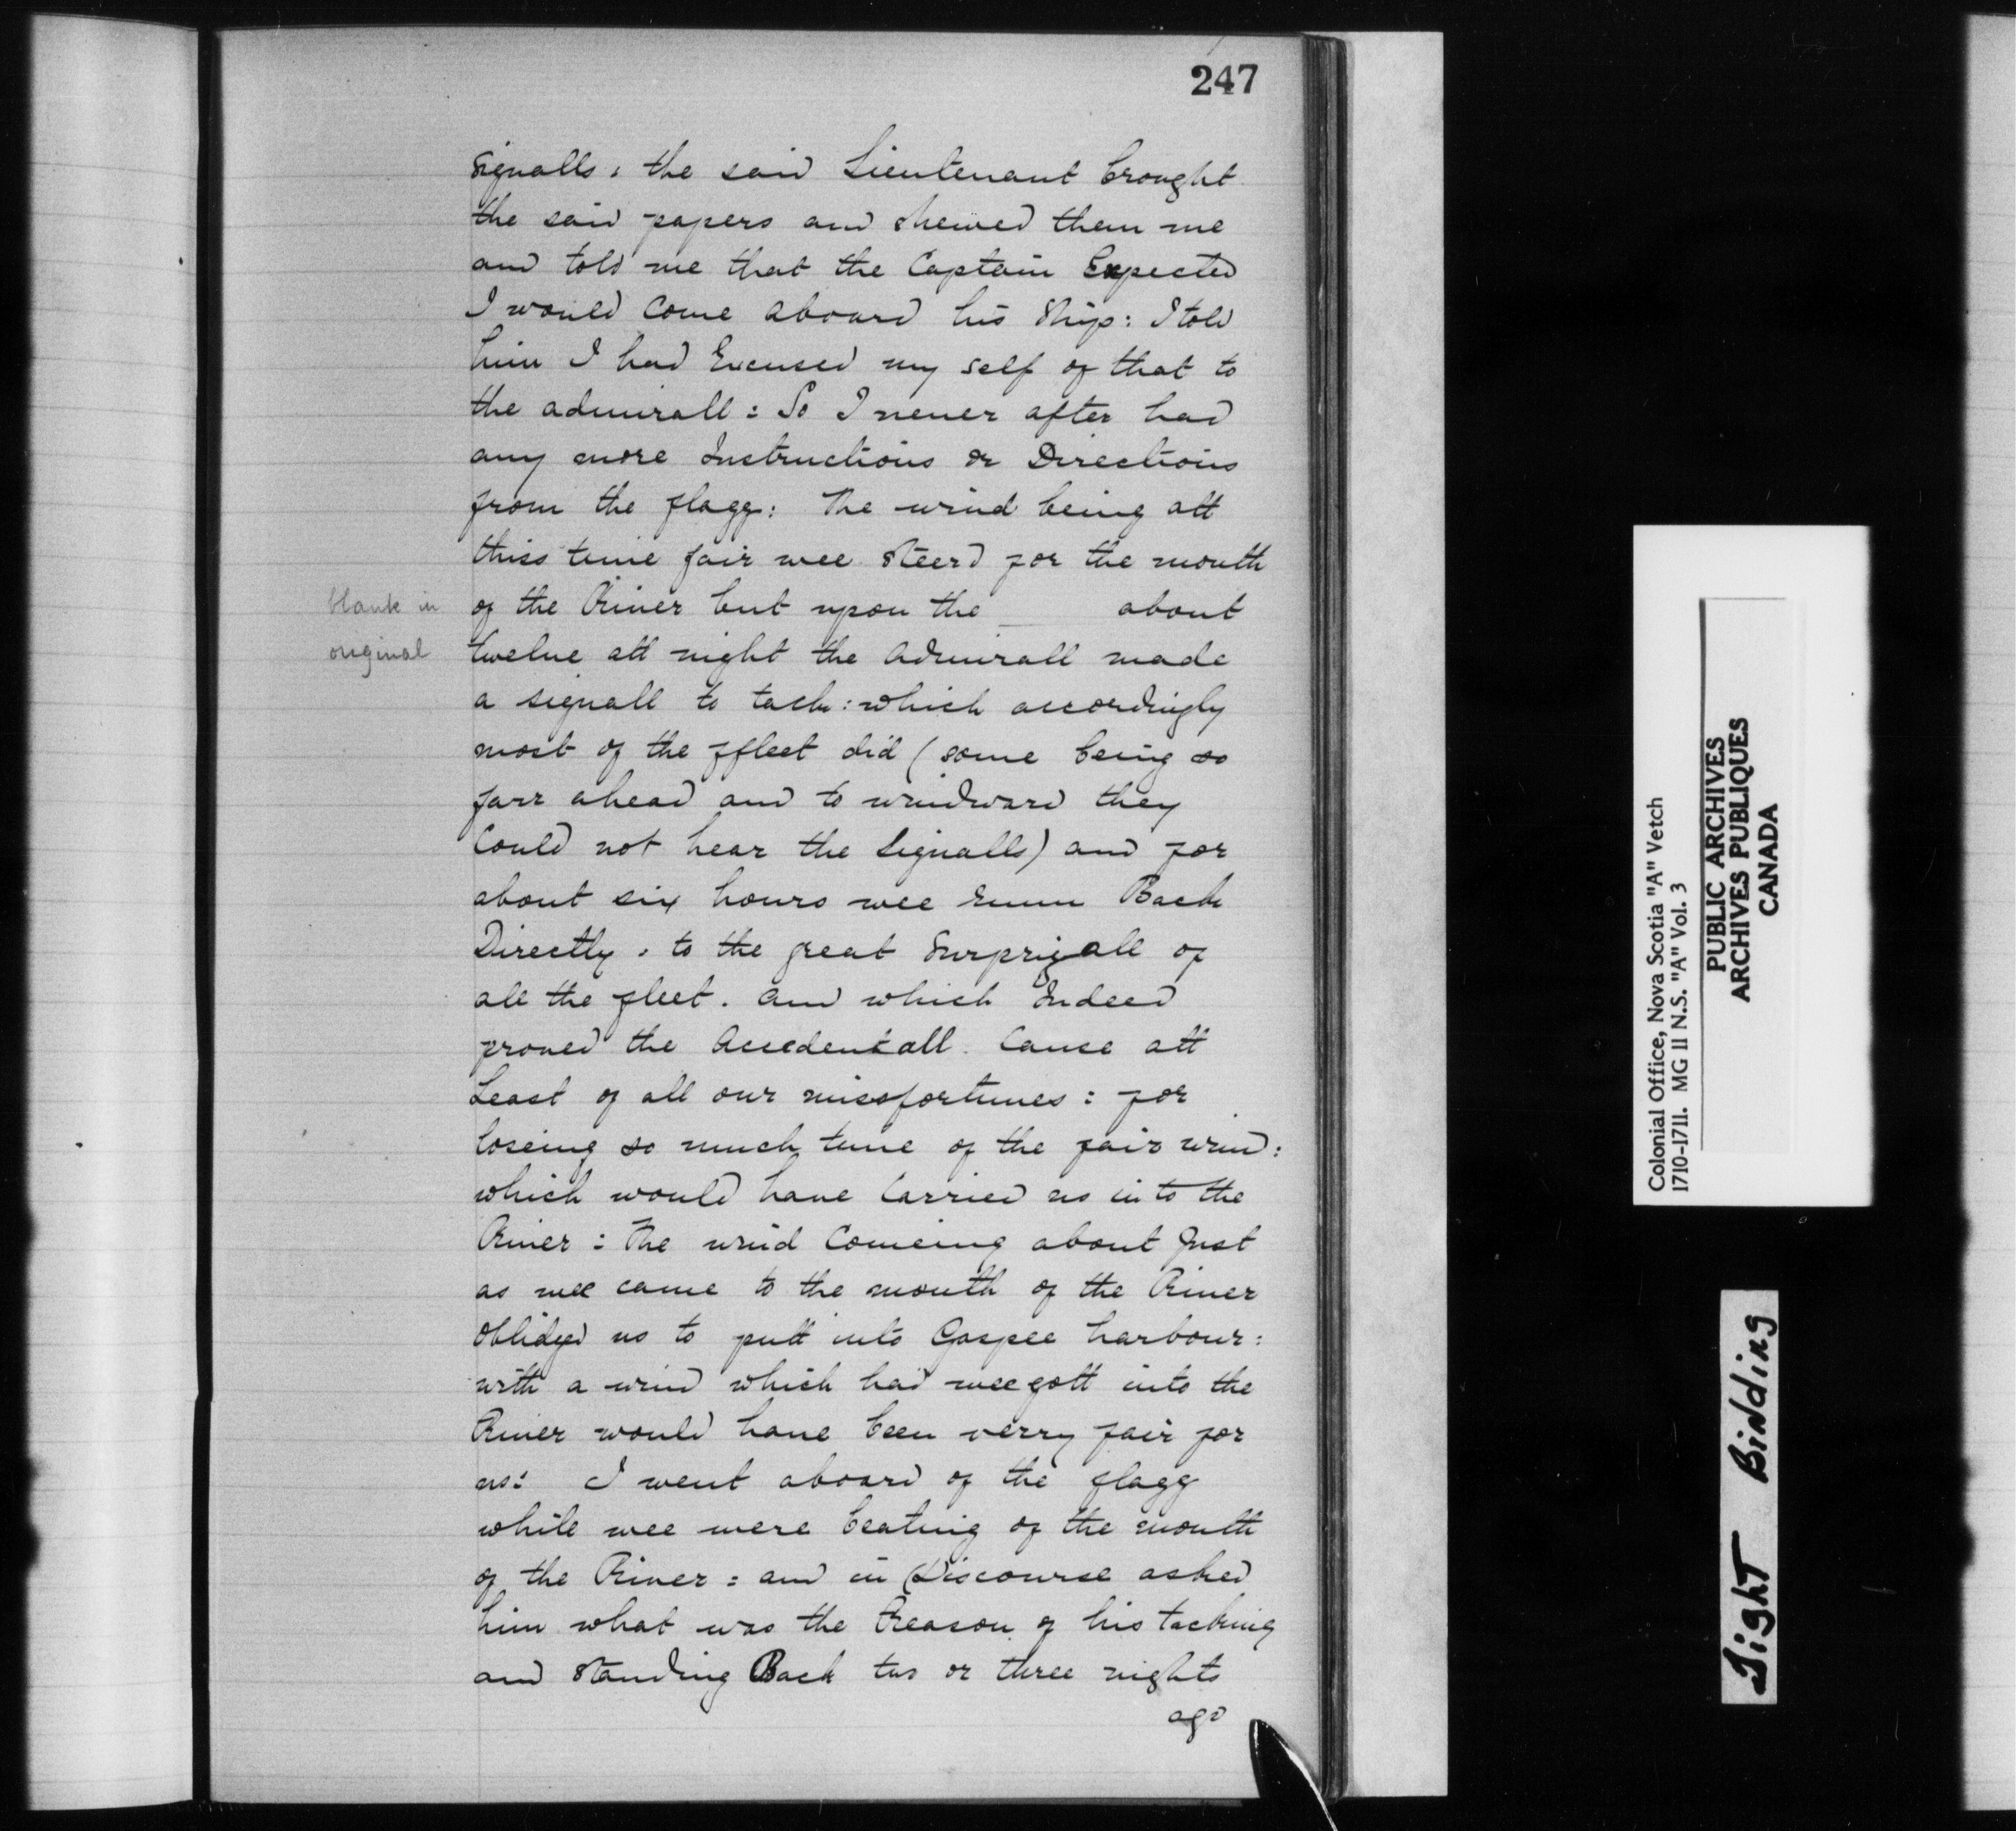 247
Signalls: the said Lieutenant brought
the said papers and shewed them me
and told me that the Captain Expected
I would Come aboard his Ship: I told
him I had Excused my self of that to
the admirall: So I never after had
any more Instructions or Directions
from the flagg: The wind being att
thiss time fair wee steerd for the mouth
blank in
original
of the River but upon the about
twelve att night the Admirall made
a signall to tack: which accordingly
most of the ffleet did (some being so
farr ahead and to windward they
Could not hear the Signalls) and for
about six hours wee runn Back
Directly, to the great Surprizall of
all the fleet. And which Indeed
proved the Accedentall Cause att
Least of all our missfortunes: for
loseing so much time of the fair wind:
which would have Carried us into the
River: The wind Comeing about Just
as wee came to the mouth of the River
Oblidged us to putt into Gaspee harbour:
with a wind which had wee gott into the
River would have been verry fair for
us: I went aboard of the flagg
while wee were beating of the mouth
of the River: and in Discourse asked
him what was the Reason of his tacking
and standing Back two or three nights
ago
Colonial Office, Nova Scotia "A" Vetch
1710-1711. MG 11 N.S. "A" Vol. 3
PUBLIC ARCHIVES
ARCHIVES PUBLIQUES
CANADA
Tight Binding